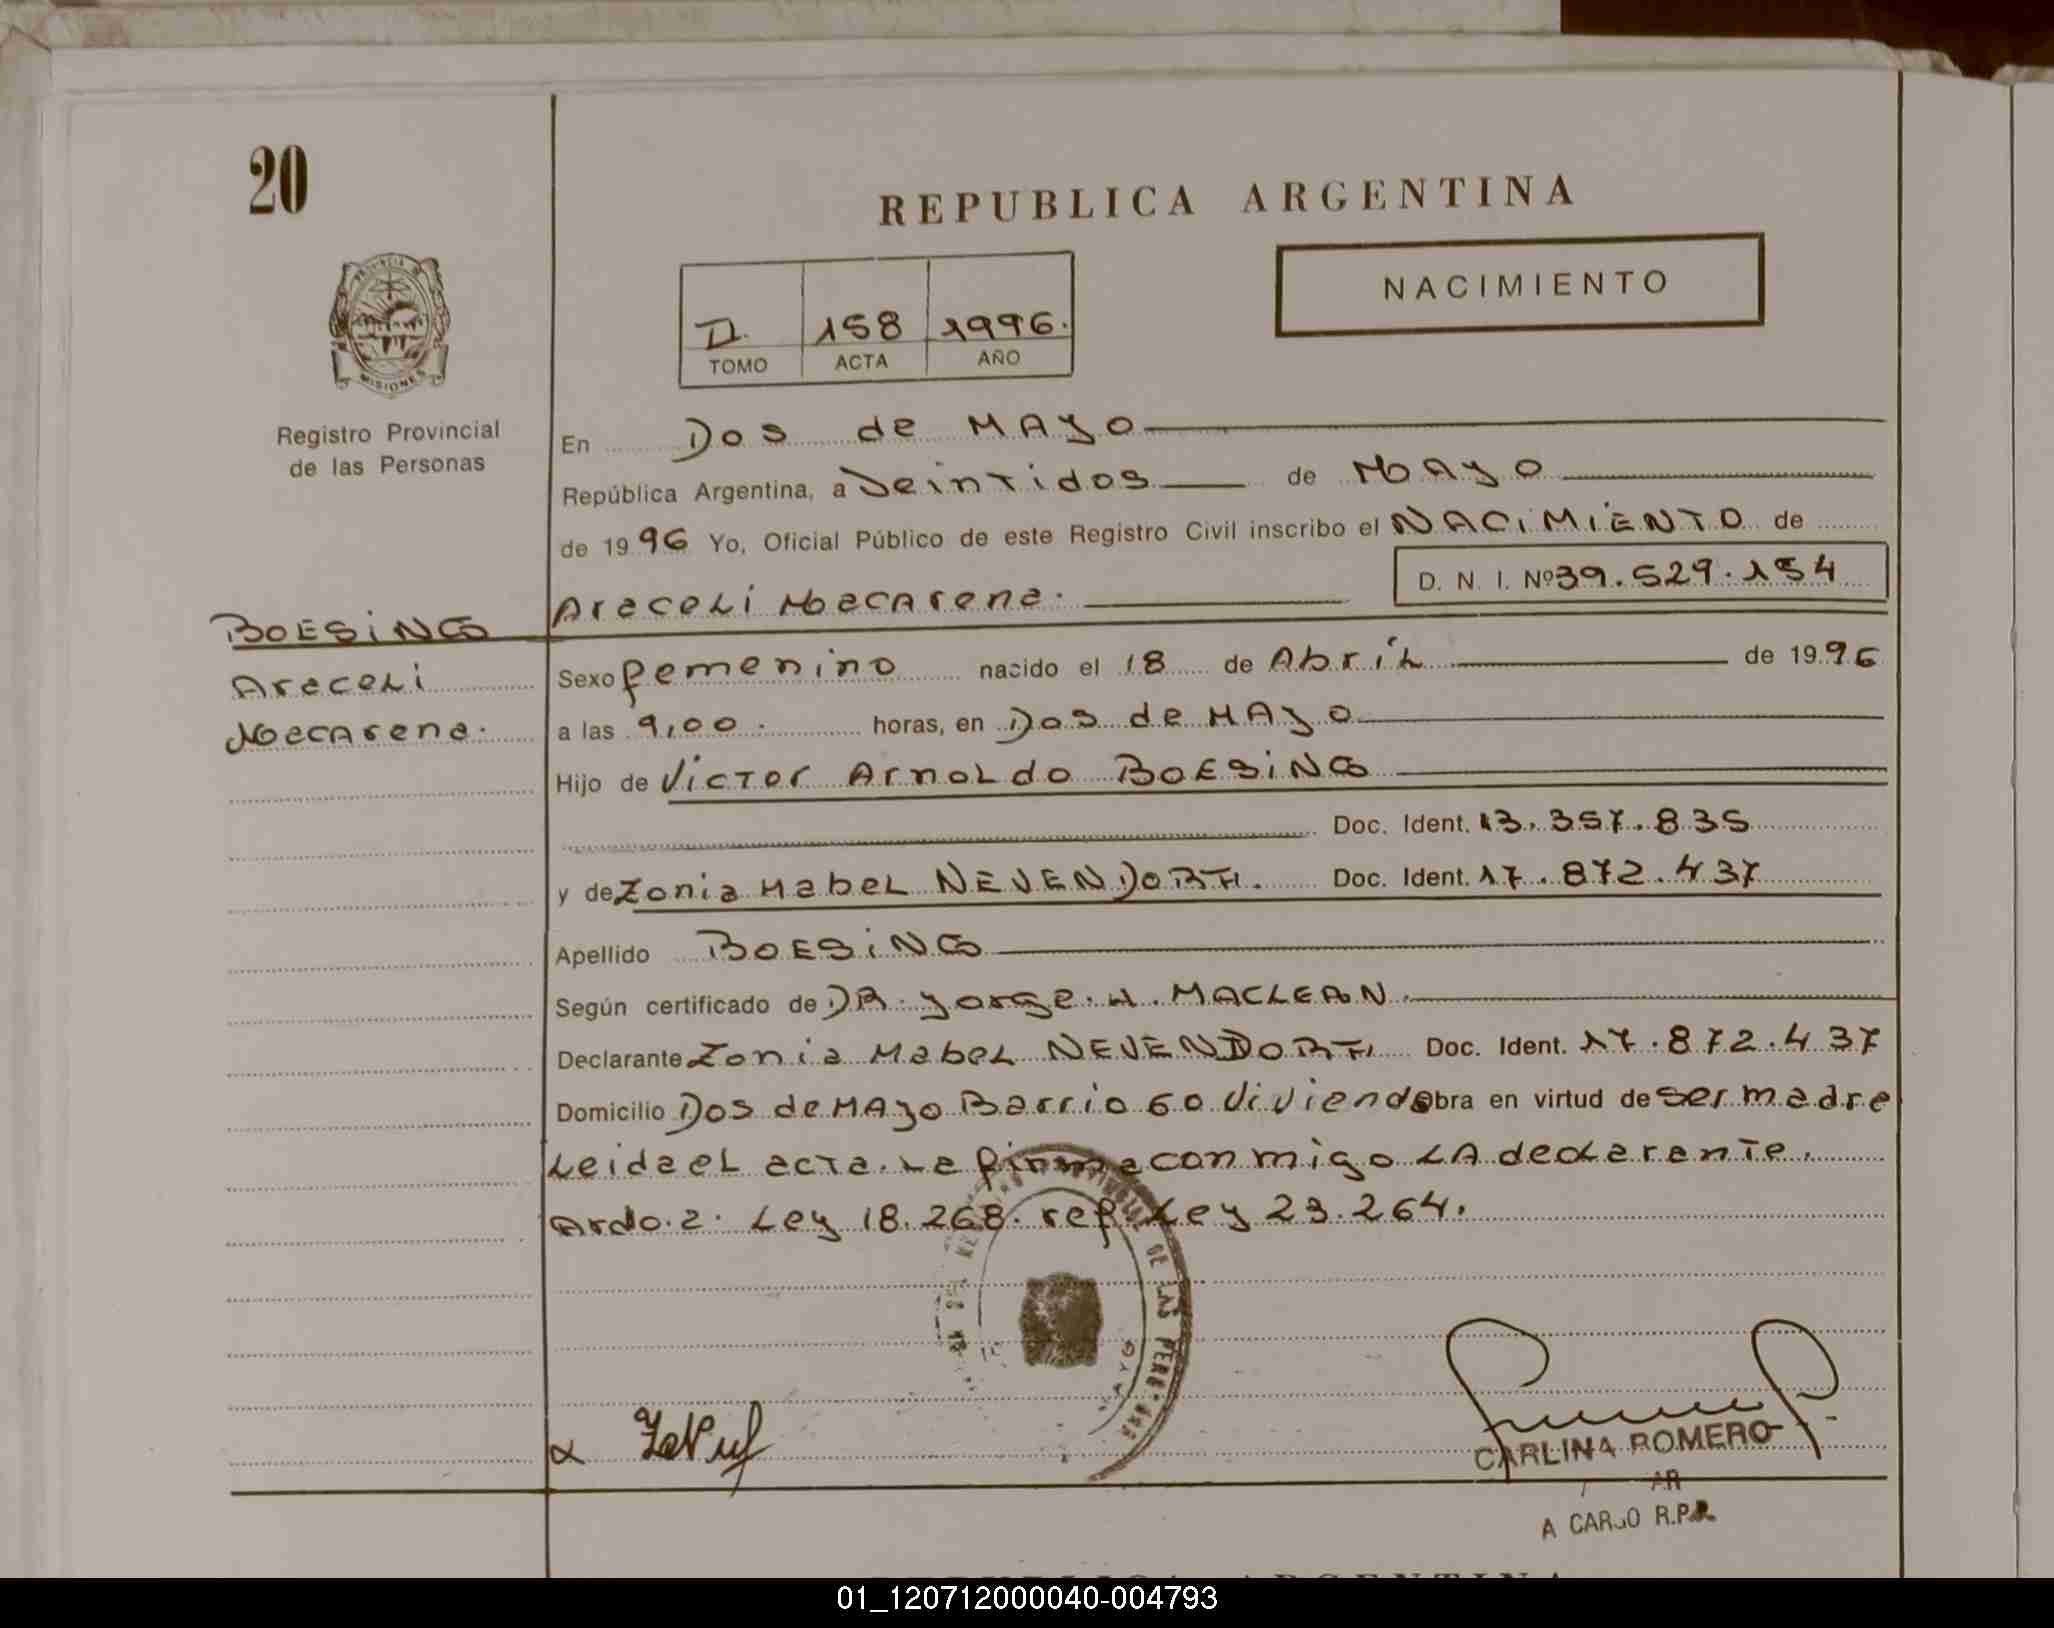 20
REPUBLICA ARGENTINA
NACIMIENTO
PROVINCIA DE
MISIONES
II. 158 1996.
TOMO ACTA AÑO
Registro Provincial
de las Personas
En Dos de MAyo
República Argentina, a Veintidos de MAyo
de 1996 Yo, Oficial Público de este Registro Civil inscribo el NACiMIENTO de
D. N. I. Nº 39.529.154
Araceli Macarena.
BOESiNG
Araceli
Macarena.
Sexo femenino nacido el 18 de Abril de 1996
a las 9,00. horas, en Dos de MAyo
Hijo de Victor Arnoldo BOESiNG
Doc. Ident. 13.357.835
y de Zonia Mabel NEUENDORFI. Doc. Ident. 17.872.437
Apellido BOESiNG
Según certificado de DR. Jorge. H. MACLEAN.
Declarante Zonia Mabel NEUENDORFI Doc. Ident. 17.872.437
Domicilio Dos de MAyo Barrio 60 Viviendobra en virtud de ser madre
Leida el acta. La firma conmigo LA declarante.
Ardo. 2. Ley 18.268. ref. Ley 23.264.
DE LAS PERS
CARLINA ROMERO
A CARGO R.P.P.
REPUBLICA ARGENTINA
01_120712000040-004793